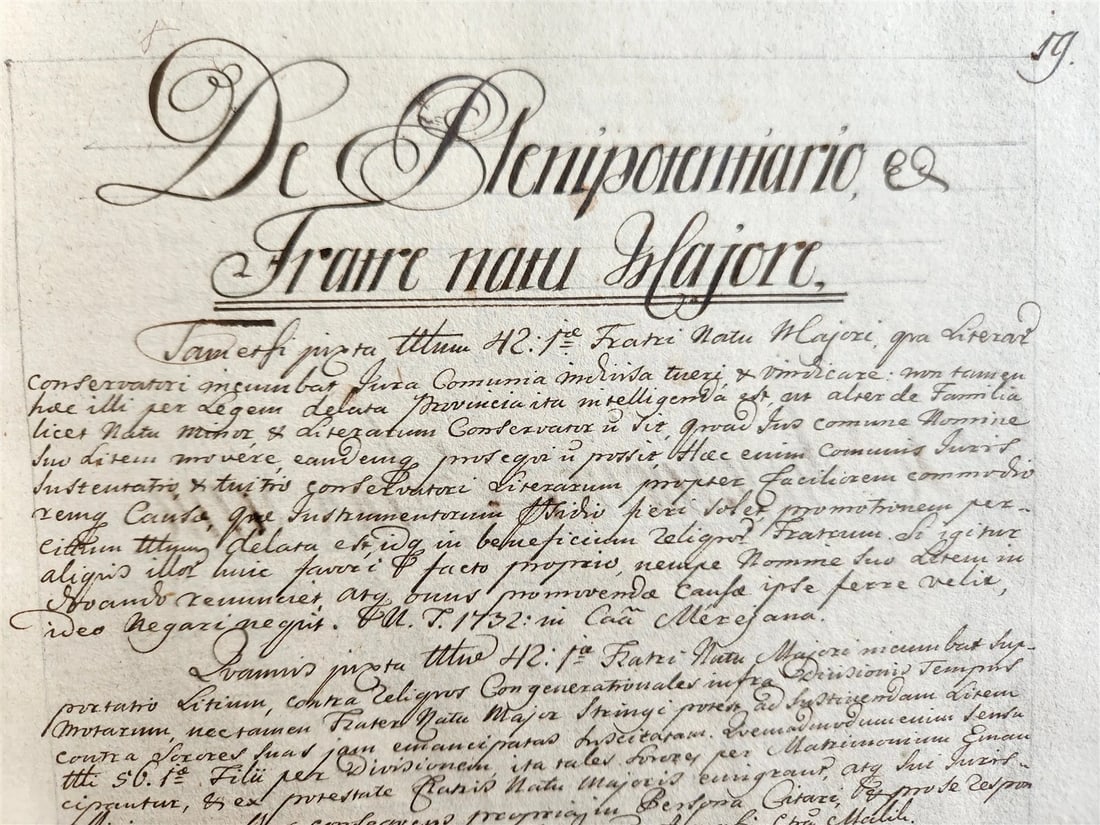 19.
De Plenipotentiario, &
Fratre natu Majore.
Tametsi juxta ttlum 42: 1æ Fratri Natu Majori, qua Literar̄
conservatori incumbat Jura Comunia indivisa tueri, & vindicare: non tamen
hæc illi per Legem delata Provincia ita intelligenda est, ut alter de Familia
licet Natu minor, & Literarum Conservator ū sit, quoad Jus comune Nomine
suo Litem movere, eandemq prosequi ū possit, Hæc enim Comunis Juris
sustentatio, & tuitio conservatori Literarum propter faciliorem commodio
remq Causæ, quæ Instrumentorum fieri solet, promotionem per
citum ttlum delata est, idq in beneficium reliquor̄ Fratrum. Si igitur
aliquis illor̄ huic favori facto proprio, nempe Nomine suo Litem in
choando renunciet, atq onus promovendæ Causæ ipse ferre velit,
ideo Negari nequit. 1732: in Caā Merejana.
Quamvis juxta ttlum 42: 1æ Fratri Natu Majori incumbat sup-
portatio Litium, contra reliquos Congenerationales infra Divisionis Tempus
motarum, nec tamen Frater Natu Major Stringi potest, ad Sustinendam Litem
contra Sorores suas jam emancipatas suscitatam. Quemadmodum enim sensu
ttli 50. 1æ. Filii per Divisionem ita tales Sorores per Matrimonium Eman
cipantur, & ex potestate Fratris Natu Majoris emigrant, atq sui Juris
consequens propria in Persona Citari, pro se respon